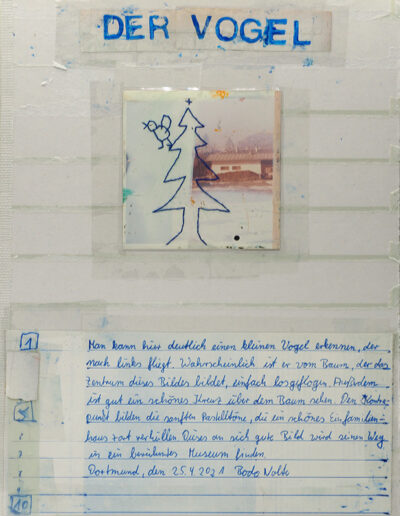 DER VOGEL
1 Man kann hier deutlich einen kleinen Vogel erkennen, der
nach links fliegt. Wahrscheinlich ist er vom Baum, der das
Zentrum dieses Bildes bildet, einfach losgeflogen. Außerdem
ist gut ein schönes Kreuz über dem Baum sehen. Den Kontra-
5 punkt bilden die sanften Pastelltöne, die ein schönes Einfamilien-
haus zart verhüllen. Dieses an sich gute Bild wird seinen Weg
in ein berühmtes Museum finden.
Dortmund, den 25.4.2021 Bodo Nolte
10